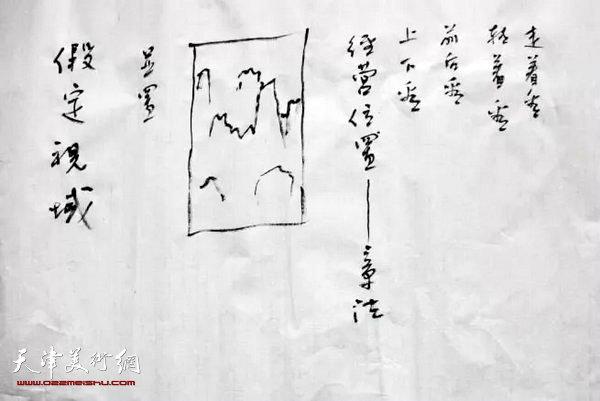 走着看
转着看
前后看
上下看
经营位置——章法
置
假定視域
天津美術網
www.022meishu.com